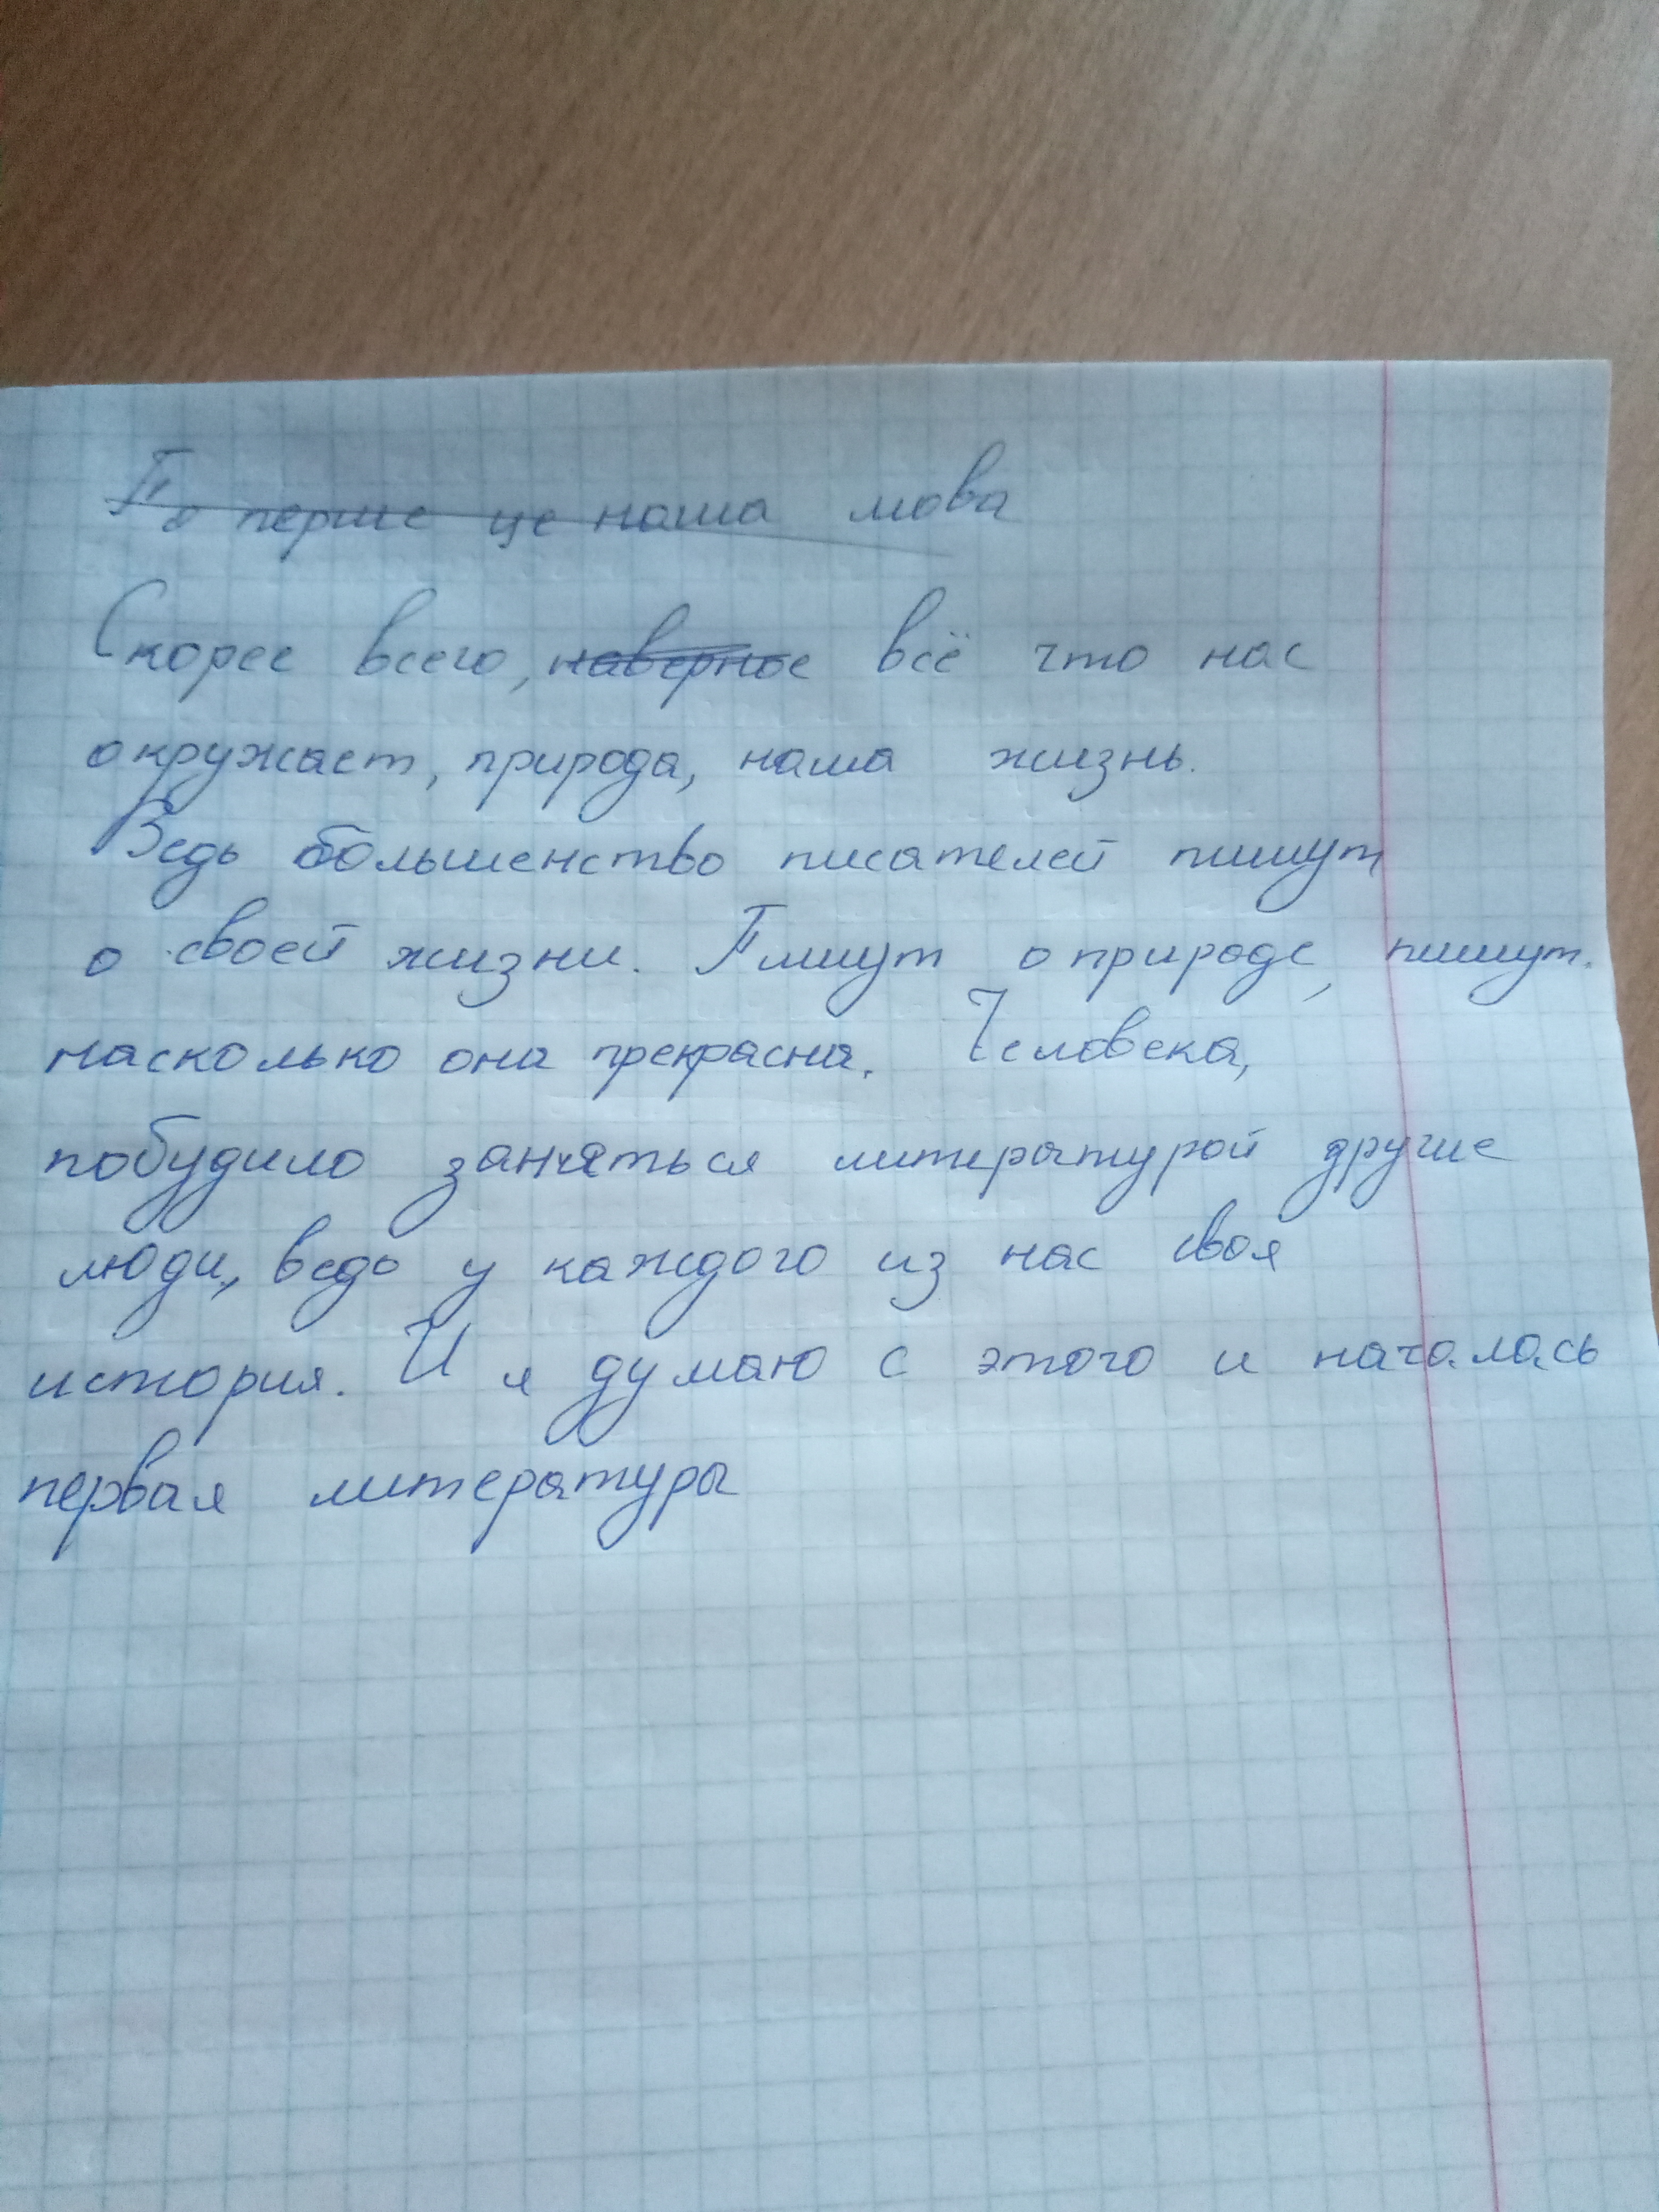 По перше це наша мова
Скорее всего, наверное всё что нас
окружает, природа, наша жизнь.
Ведь большенство писателей пишут
о своей жизни. Пишут о природе, пишут.
насколько она прекрасна. Человека,
побудило заняться литературой другие
люди, ведь у каждого из нас своя
история. И я думаю с этого и началась
первая литературы